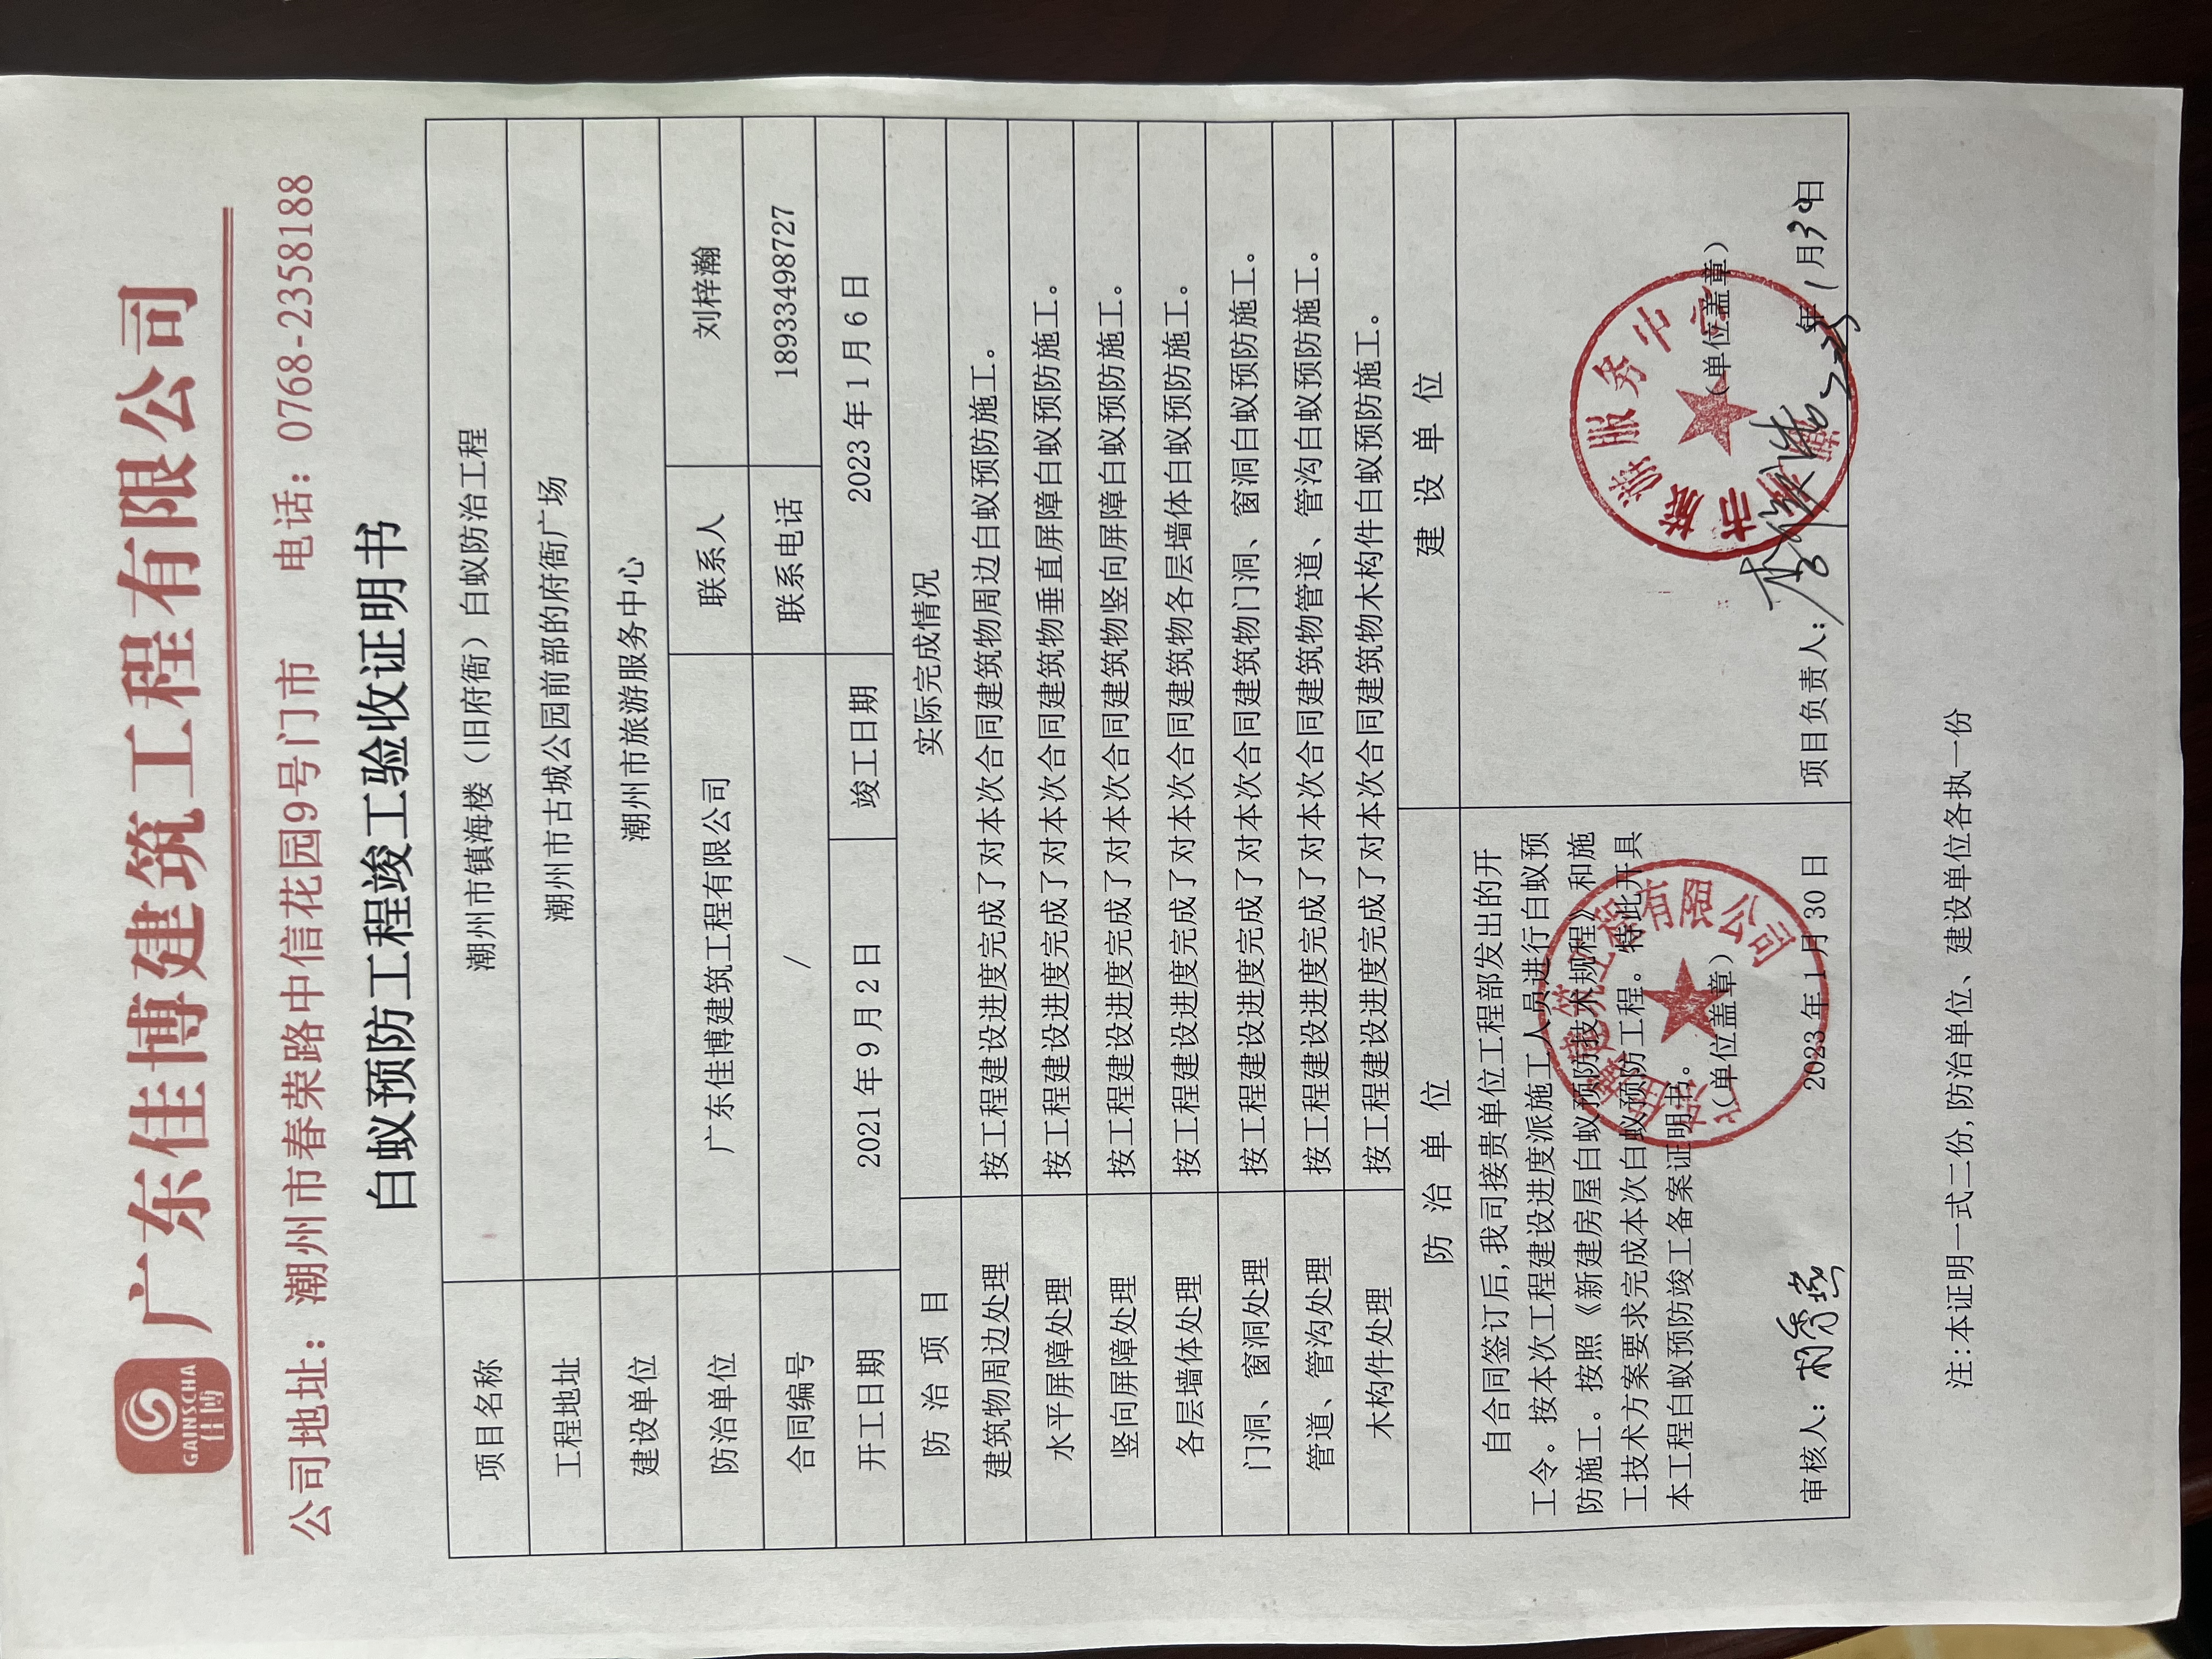 GAINSCHA
佳博
广东佳博建筑工程有限公司
公司地址：潮州市春荣路中信花园9号门市 电话：0768-2358188
白蚁预防工程竣工验收证明书
项目名称 潮州市镇海楼（旧府衙）白蚁防治工程
工程地址 潮州市古城公园前部的府衙广场
建设单位 潮州市旅游服务中心
防治单位 广东佳博建筑工程有限公司 联系人 刘梓瀚
合同编号 / 联系电话 18933498727
开工日期 2021年9月2日 竣工日期 2023年1月6日
防治项目 实际完成情况
建筑物周边处理 按工程建设进度完成了对本次合同建筑物周边白蚁预防施工。
水平屏障处理 按工程建设进度完成了对本次合同建筑物垂直屏障白蚁预防施工。
竖向屏障处理 按工程建设进度完成了对本次合同建筑物竖向屏障白蚁预防施工。
各层墙体处理 按工程建设进度完成了对本次合同建筑物各层墙体白蚁预防施工。
门洞、窗洞处理 按工程建设进度完成了对本次合同建筑物门洞、窗洞白蚁预防施工。
管道、管沟处理 按工程建设进度完成了对本次合同建筑物管道、管沟白蚁预防施工。
木构件处理 按工程建设进度完成了对本次合同建筑物木构件白蚁预防施工。
防治单位 建设单位
自合同签订后,我司接贵单位工程部发出的开
工令。按本次工程建设进度派施工人员进行白蚁预
防施工。按照《新建房屋白蚁预防技术规程》和施
工技术方案要求完成本次白蚁预防工程。特此开具
本工程白蚁预防竣工备案证明书。
（单位盖章）
审核人：
2023年1月30日
（单位盖章）
项目负责人：
2023年1月30日
市旅游服务中心
建筑工程有限公司
注:本证明一式二份,防治单位、建设单位各执一份